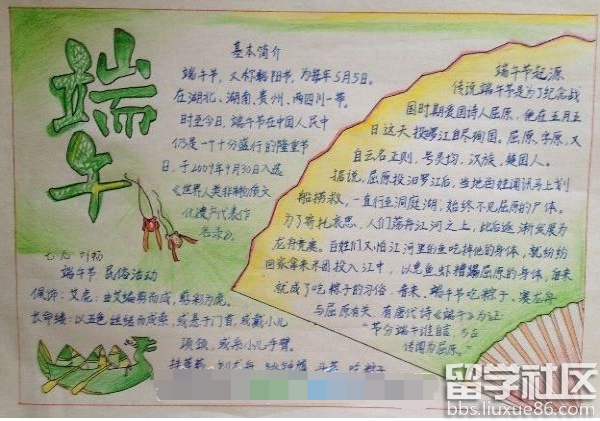 端午
基本简介
端午节，又称端阳节，为每年5月5日。
在湖北、湖南、贵州、四川一带。
时至今日，端午节在中国人民中
仍是一个十分盛行的隆重节
日，于2009年9月30日入选
《世界人类非物质文
化遗产代表作
名录》。
七.九 刘杨
端午节 民俗活动
佩饰：艾虎：由艾编剪而成，剪彩为虎。
长命缕：以五色丝结而成索，或悬于门首，或戴小儿
项颈，或系小儿手臂。
端午节起源
传说端午节是为了纪念战
国时期爱国诗人屈原，他在五月五
日这天投汨罗江自尽殉国。屈原，字原，又
自云名正则，号灵均，汉族，楚国人。
据说，屈原投汨罗江后，当地百姓闻讯马上划
船捞救，一直行至洞庭湖，始终不见屈原的尸体。
为了寄托哀思，人们荡舟江河之上，此后逐渐发展为
龙舟竞赛。百姓们又怕江河里的鱼吃掉他的身体，就纷纷
回家拿来米团投入江中，以免鱼虾糟蹋屈原的身体，后来
就成了吃粽子的习俗。看来，端午节吃粽子、赛龙舟
与屈原有关，有唐代诗《端午》为证：
"节分端午谁自言，万古
传闻为屈原。"
留学社区
bbs.liuxue86.com